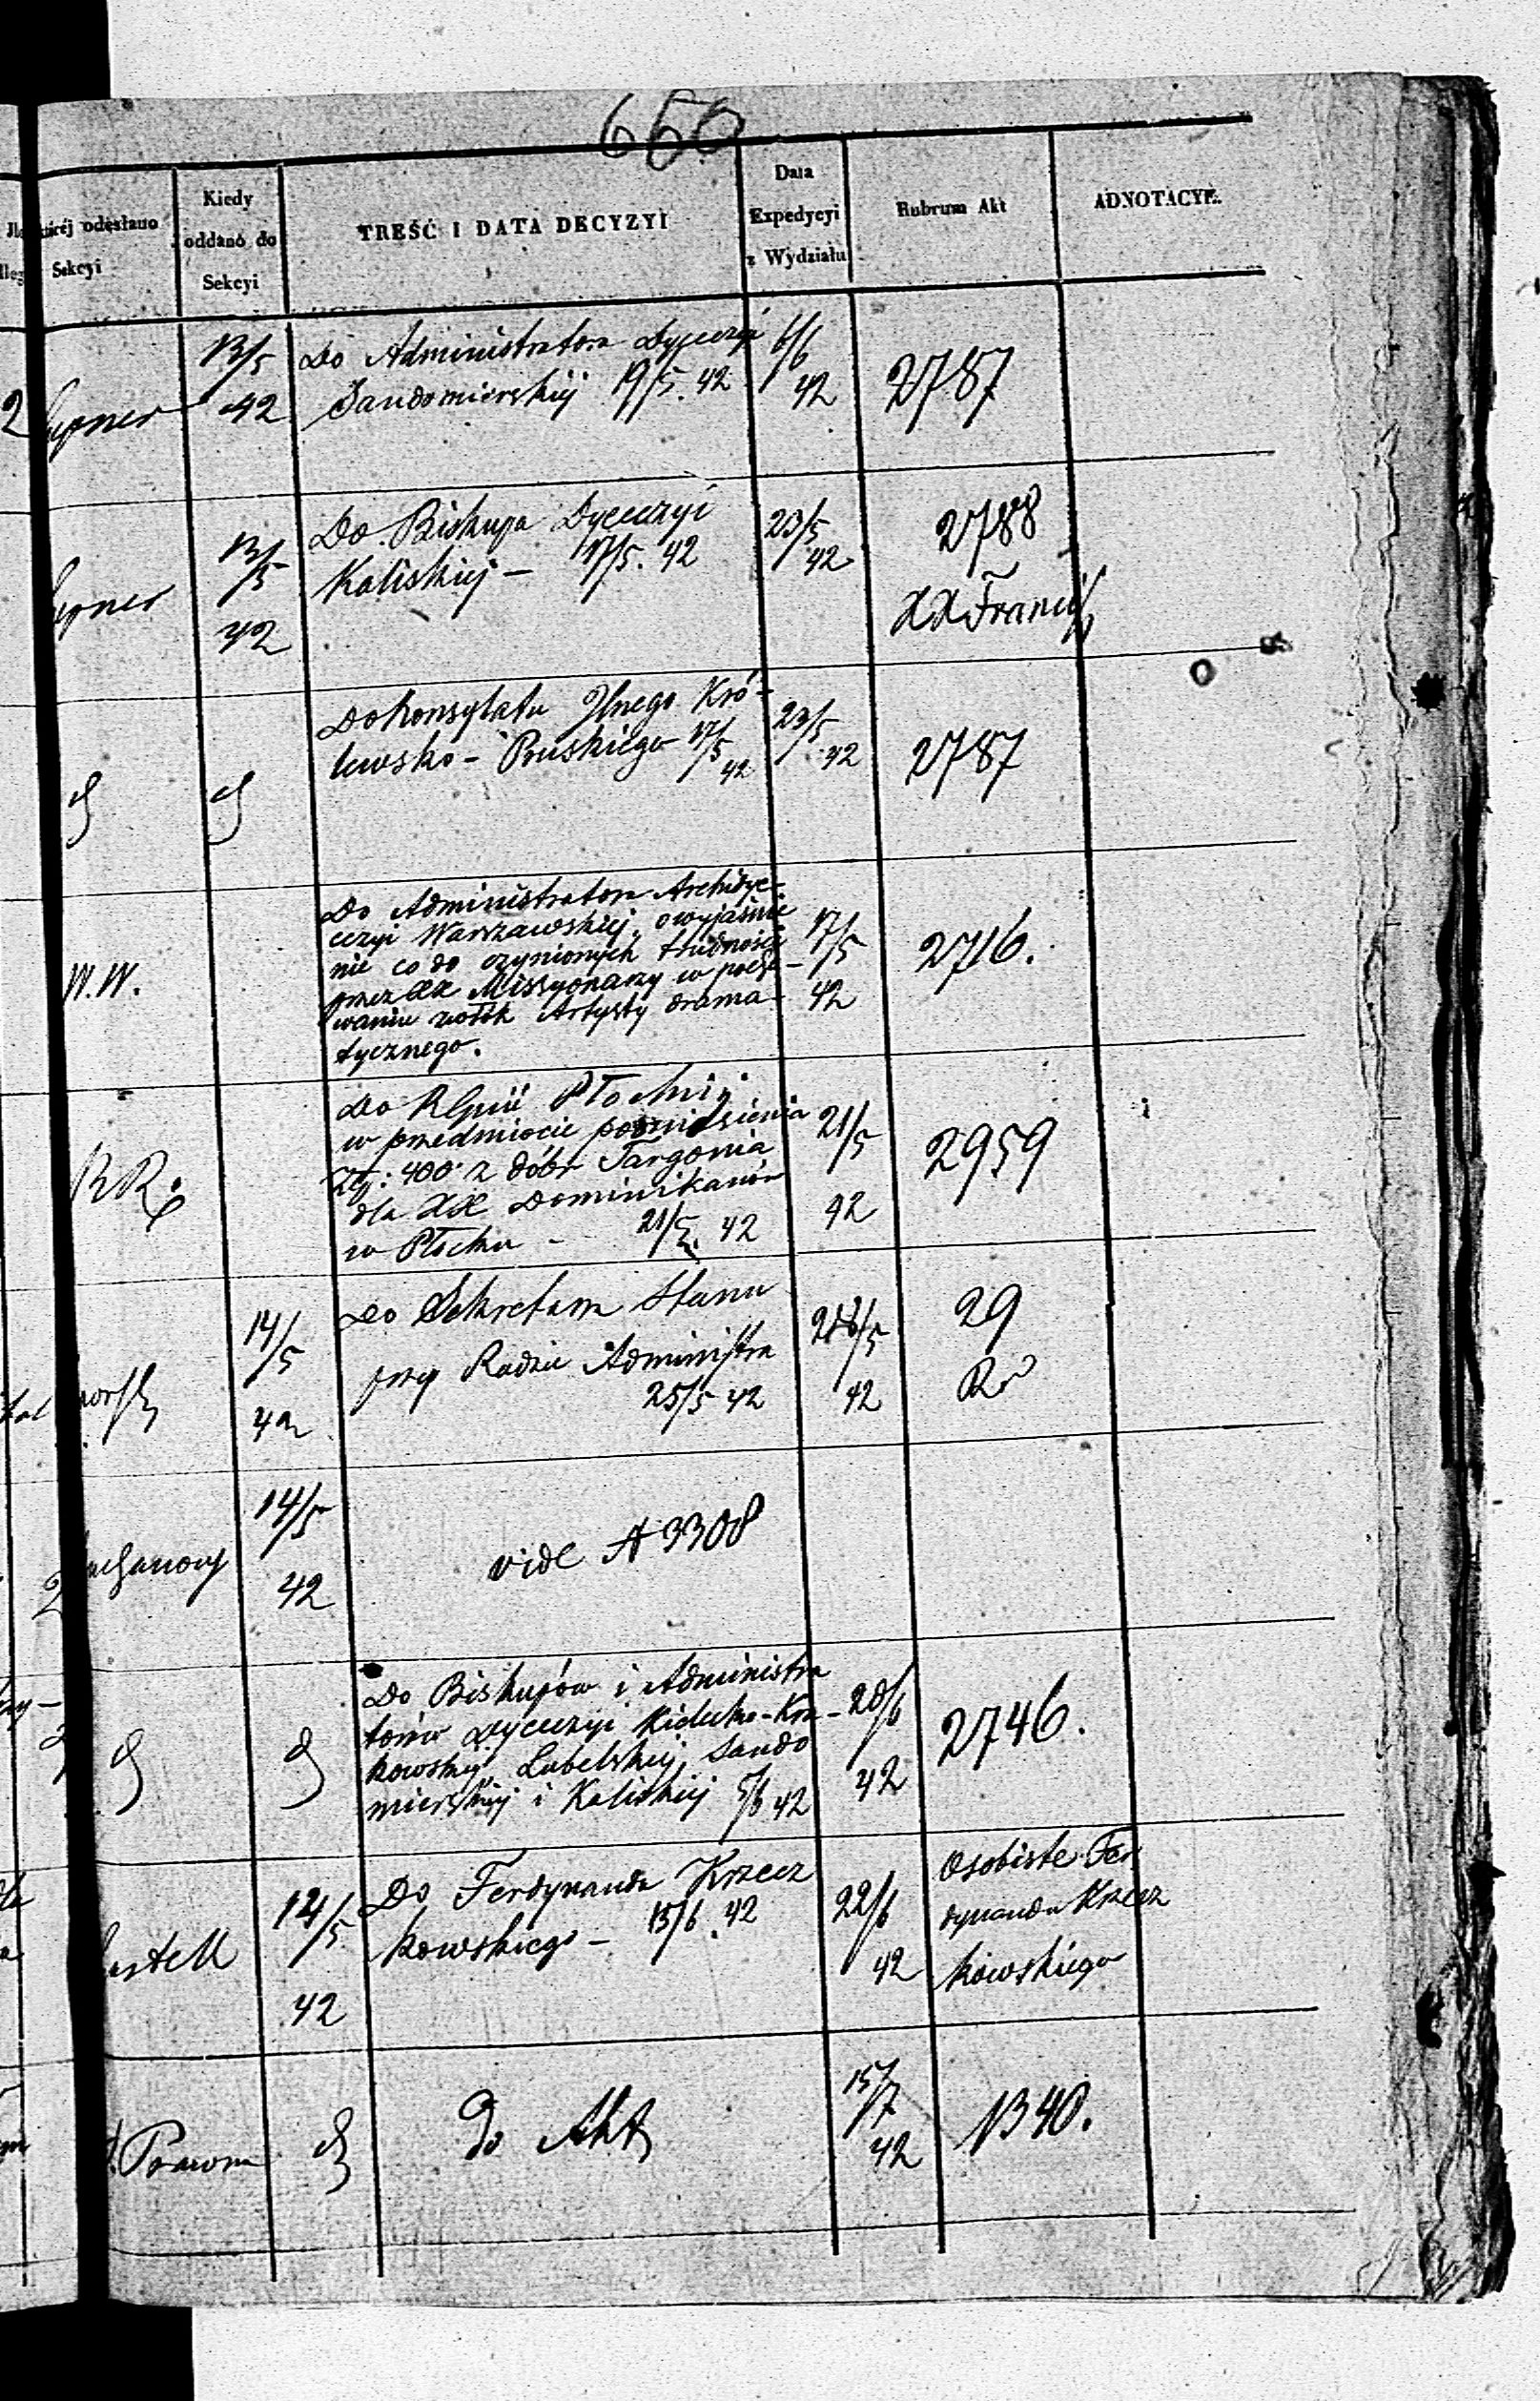 650
Kiedy
oddano do
Sekcyi
odesłano
Sekcyi
TREŚĆ I DATA DECYZYI
Data
Expedycyi
z Wydziału
Rubrum Akt
ADNOTACYE.
13/5
42
Do Administratora Dyecezyi
Sandomierskiéj 19/5. 42
6/6
42
2787
13/5
42
Do Biskupa Dyecezyi
Kaliskiej — 17/5. 42
23/5
42
2788
XX Francis
Do Konsulatu Jlnego Kró-
lewsko - Pruskiego 17/5
42
23/5
42
2787
W. W.
Do Administratora Archidye-
cezyi Warszawskiej, o wyjaśnie
nie co do czynionych trudności
przez XX Missyonarzy w
zwłok Artysty drama-
tycznego.
17/5
42
2716.
RR.
Do
w przedmiocie podniesienia
Złp: 400 z dóbr Targonia
dla XX Dominikanów
w Płocku - 21/5. 42
21/5
42
2959
14/5
42
Do Sekretarza Stanu
przy Radzie Administra
25/5 42
28/5
42
29
14/5
42
vide A 3308
Do Biskupów i Administra
torów Dyecezyi Kielecko-Kra-
kowskiej, Lubelskiej, Sando
mierskiej i Kaliskiej 5/6 42
20/6
42
2746.
14/5
42
Do Ferdynanda Krzecz
kowskiego — 15/6. 42
22/6
42
Osobiste Fer
dynanda Krzecz
kowskiego
Prawna
do Akt
15/7
42
1340.